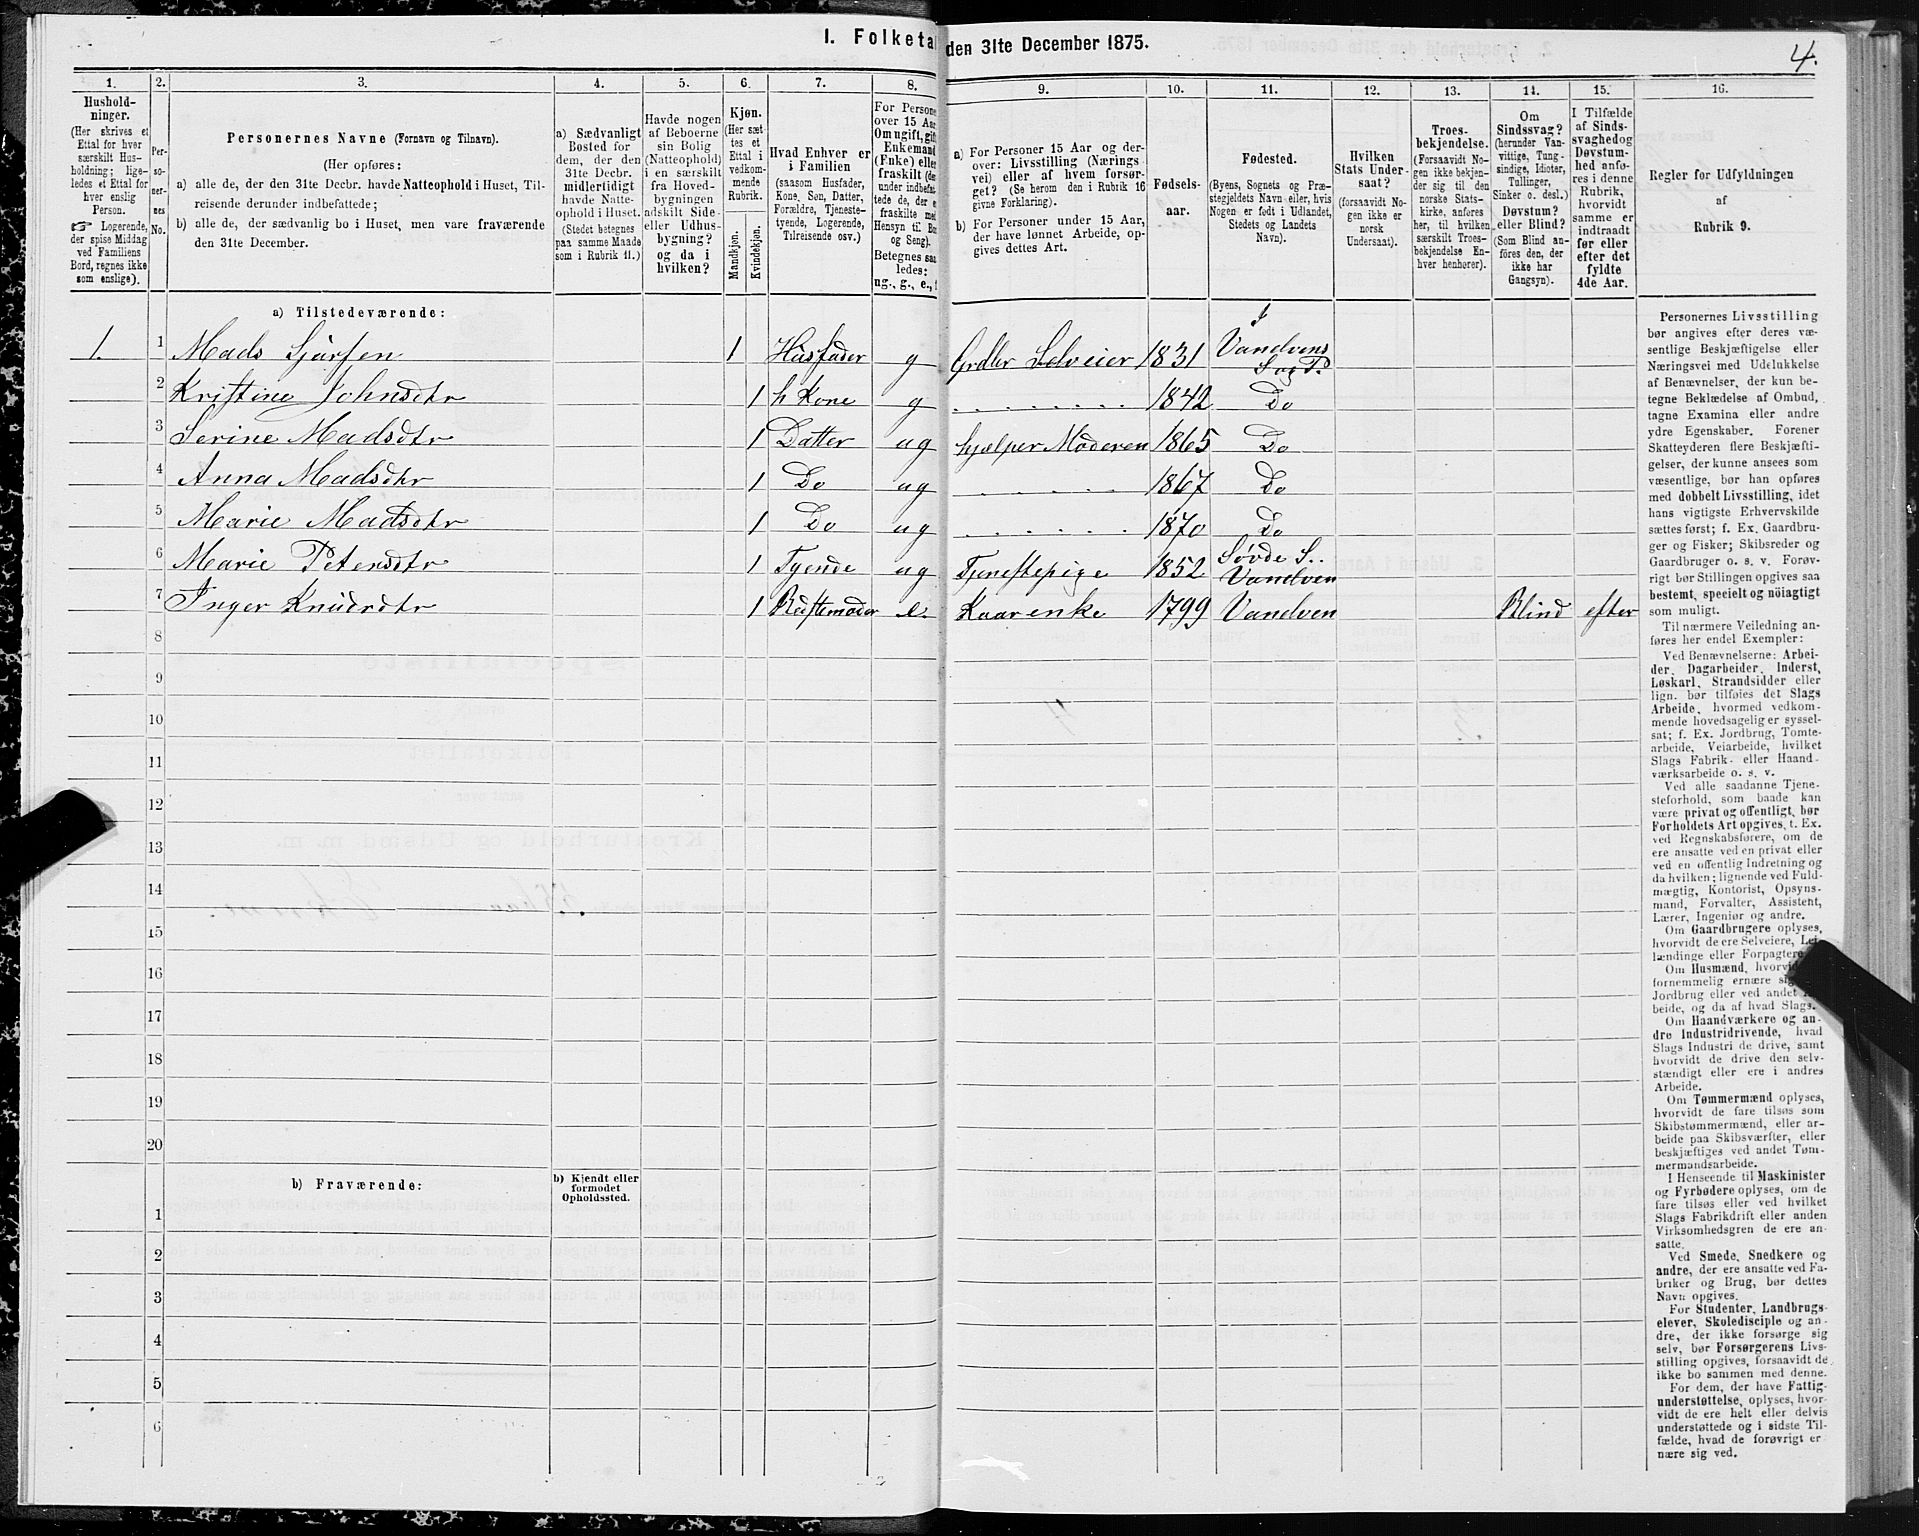 I. Folketal den 31te December 1875.
4.
1.
Hushold-
ninger.
(Her skrives et
Ettal for hver
særskilt Hus-
holdning; lige-
ledes et Ettal for
hver enslig
Person.
☞ Logerende,
der spise Middag
ved Familiens
Bord, regnes ikke
som enslige).
2.
Per-
so-
ner-
nes
No.
3.
Personernes Navne (Fornavn og Tilnavn).
(Her opføres:
a) alle de, der den 31te Decbr. havde Natteophold i Huset, Til-
reisende derunder indbefattede;
b) alle de, der sædvanlig bo i Huset, men vare fraværende
den 31te December.
4.
a) Sædvanligt
Bosted for
dem, der den
31te Decbr.
midlertidigt
havde Natte-
ophold i Huset.
(Stedet betegnes
paa samme Maade
som i Rubrik 11.)
5.
Havde nogen
af Beboerne
sin Bolig
(Natteophold)
i en særskilt
fra Hoved-
bygningen
adskilt Side-
eller Udhus-
bygning?
og da i
hvilken?
6.
Kjøn.
(Her sæt-
tes et
Ettal i
vedkom-
mende
Rubrik.
Mandkjøn.
Kvindekjøn.
7.
Hvad Enhver er
i Familien
(saasom Husfader,
Kone, Søn, Datter,
Forældre, Tjeneste-
tyende, Logerende,
Tilreisende osv.)
8.
For Persone
over 15 Aar
Om ugift, gift
Enkemand
(Enke) eller
fraskilt (der
under indbefat-
tede de, der e
fraskilte med
Hensyn til Bor
og Seng).
Betegnes saa
ledes:
ug., g., e., f
9.
a) For Personer 15 Aar og der-
over: Livsstilling (Nærings
vei) eller af hvem forsør-
get? (Se herom den i Rubrik 16
givne Forklaring).
b) For Personer under 15 Aar,
der have lønnet Arbeide, op-
gives dettes Art.
10.
Fødsels-
aar.
11.
Fødested.
(Byens, Sognets og Præ-
stegjeldets Navn eller, hvis
Nogen er født i Udlandet,
Stedets og Landets
Navn).
12.
Hvilken
Stats Under-
saat?
(forsaavidt No-
gen ikke er
norsk
Undersaat).
13.
Troes-
bekjendelse.
(Forsaavidt No-
gen ikke bekjen-
der sig til den
norske Stats-
kirke, anføres
her, til hvilken
særskilt Troes-
bekjendelse En-
hver henhører).
14.
Om
Sindssvag?
(herunder Van-
vittige, Tung-
sindige, Idioter,
Tullinger,
Sinker o. desl.)
Døvstum?
eller Blind?
(Som Blind an-
føres den, der
ikke har
Gangsyn).
15.
I Tilfælde
af Sinds-
svaghed og
Døvstum-
hed anfø-
res i denne
Rubrik,
hvorvidt
samme er
indtraadt
før eller
efter det
fyldte
4de Aar.
16.
Regler for Udfyldningen
af
Rubrik 9.
a) Tilstedeværende:
1. 1 Mads Sjursen 1 Husfader g Grdbr Selveier 1831 Vandvens
Sog P.
2 Kristine Johnsdtr 1 h Kone g . . . . . . . . 1842 Do
3 Serine Madsdtr 1 Datter ug hjælper Moderen 1865 Do
4 Anna Madsdtr 1 Do ug . . . . . . 1867 Do
5 Marie Madsdtr 1 Do ug . . . . . . 1870 Do
6 Marie Petersdtr 1 Tyende ug Tjenestepige 1852 Søvde S..
Vandven
7 Inger Knudsdtr 1 e. Kaarenke 1799 Vandven Blind efter
8
9
10
11
12
13
14
15
16
17
18
19
20
b) Fraværende:
b) Kjendt eller
formodet
Opholdssted.
1
2
3
4
5
6
Personernes Livsstilling
bør angives efter deres væ-
sentlige Beskjæftigelse eller
Næringsvei med Udelukkelse
af Benævnelser, der kun be-
tegne Beklædelse af Ombud,
tagne Examina eller andre
ydre Egenskaber. Forener
Skatteyderen flere Beskjæfti-
gelser, der kunne ansees som
væsentlige, bør han opføres
med dobbelt Livsstilling, idet
hans vigtigste Erhvervskilde
sættes først; f. Ex. Gaardbru-
ger og Fisker; Skibsreder og
Gaardbruger o. s. v. Forøv-
rigt bør Stillingen opgives saa
bestemt, specielt og nøiagtigt
som muligt.
Til nærmere Veiledning an-
føres her endel Exempler:
Ved Benævnelserne: Arbei-
der, Dagarbeider, Inderst,
Løskarl, Strandsidder eller
lign. bør tilføies det Slags
Arbeide, hvormed vedkom-
mende hovedsagelig er syssel-
sat; f. Ex. Jordbrug, Tomte-
arbeide, Veiarbeide, hvilket
Slags Fabrik- eller Haand-
værksarbeide o. s. v.
Ved alle saadanne Tjene-
steforhold, som baade kan
være privat og offentligt, bør
Forholdets Art opgives, t. Ex.
ved Regnskabsførere, om de
ere ansatte ved en privat eller
ved en offentlig Indretning og
da hvilken; lignende ved Fuld-
mægtig, Kontorist, Opsyns-
mand, Forvalter, Assistent,
Lærer, Ingeniør og andre.
Om Gaardbrugere oplyses,
hvorvidt de ere Selveiere, Lei-
lændinge eller Forpagtere
Om Husmænd, hvorvidt
fornemmelig ernære sig
Jordbrug eller ved andet Ar-
beide, og da af hvad Slags.
Om Haandværkere og an-
dre Industridrivende, hvad
Slags Industri de drive, samt
hvorvidt de drive den selv-
stændigt eller ere i andres
Arbeide.
Om Tømmermænd oplyses,
hvorvidt de fare tilsøs som
Skibstømmermænd, eller ar-
beide paa Skibsværfter, eller
beskjæftiges ved andet Tøm-
mermandsarbeide.
I Henseende til Maskinister
og Fyrbødere oplyses, om de
fare tilsøs eller ved hvilket
Slags Fabrikdrift eller anden
Virksomhedsgren de ere an-
satte.
Ved Smede, Snedkere og
andre, der ere ansatte ved Fa-
briker og Brug, bør dettes
Navn opgives.
For Studenter, Landbrugs-
elever, Skoledisciple og an-
dre, der ikke forsørge sig
selv, bør Forsørgerens Livs-
stilling opgives, forsaavidt de
ikke bo sammen med denne.
For dem, der have Fattig-
understøttelse, oplyses, hvor-
vidt de ere helt eller delvis
understøttede og i sidste Til-
fælde, hvad de forøvrigt er-
nære sig ved.